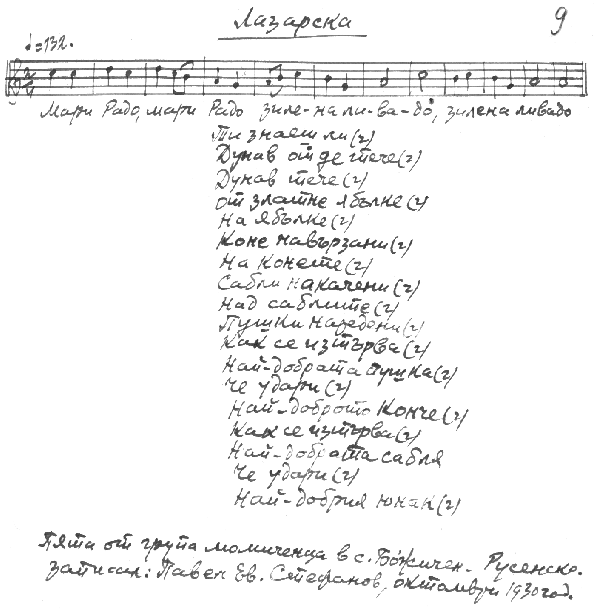 Лазарска
9
♩=132.
Мари Радо, мари Радо зиле-на ли-ва-до, зилена ливадо
Ти знаеш ли (2)
Дунав от де тече (2)
Дунав тече (2)
от златне ябълке (2)
на ябълке (2)
Коне навързани (2)
на конете (2)
Сабли накачени (2)
над саблите (2)
Пушки наредени (2)
Как се изтърва (2)
Най-добрата пушка (2)
Че удари (2)
Най-доброто Конче (2)
Как се изтърва (2)
Най-добрата сабля
Че удари (2)
Най-добрия юнак (2)
Пята от група момиченца в с. Божичен. Русенско.
записал: Павел Ев. Стефанов, октомври 1930 год.